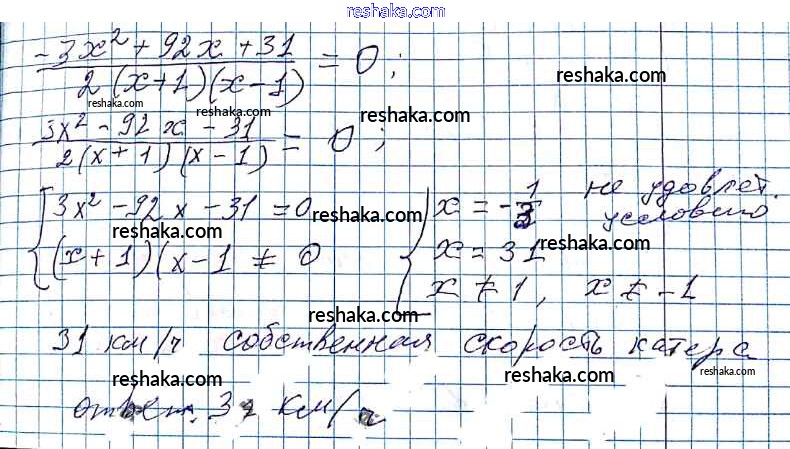 reshaka.com
(-3x² + 92x + 31) / (2(x+1)(x-1)) = 0;
reshaka.com
reshaka.com
reshaka.com
reshaka.com
(3x² - 92x - 31) / (2(x+1)(x-1)) = 0;
reshaka.com
{ 3x² - 92x - 31 = 0 { x = -1/3 не удовлет.
условию
(x+1)(x-1 ≠ 0 x = 31
reshaka.com
reshaka.com
x ≠ 1, x ≠ -1
reshaka.com
31 км/ч собственная скорость катера
reshaka.com
reshaka.com
reshaka.com
ответ: 31 км/ч